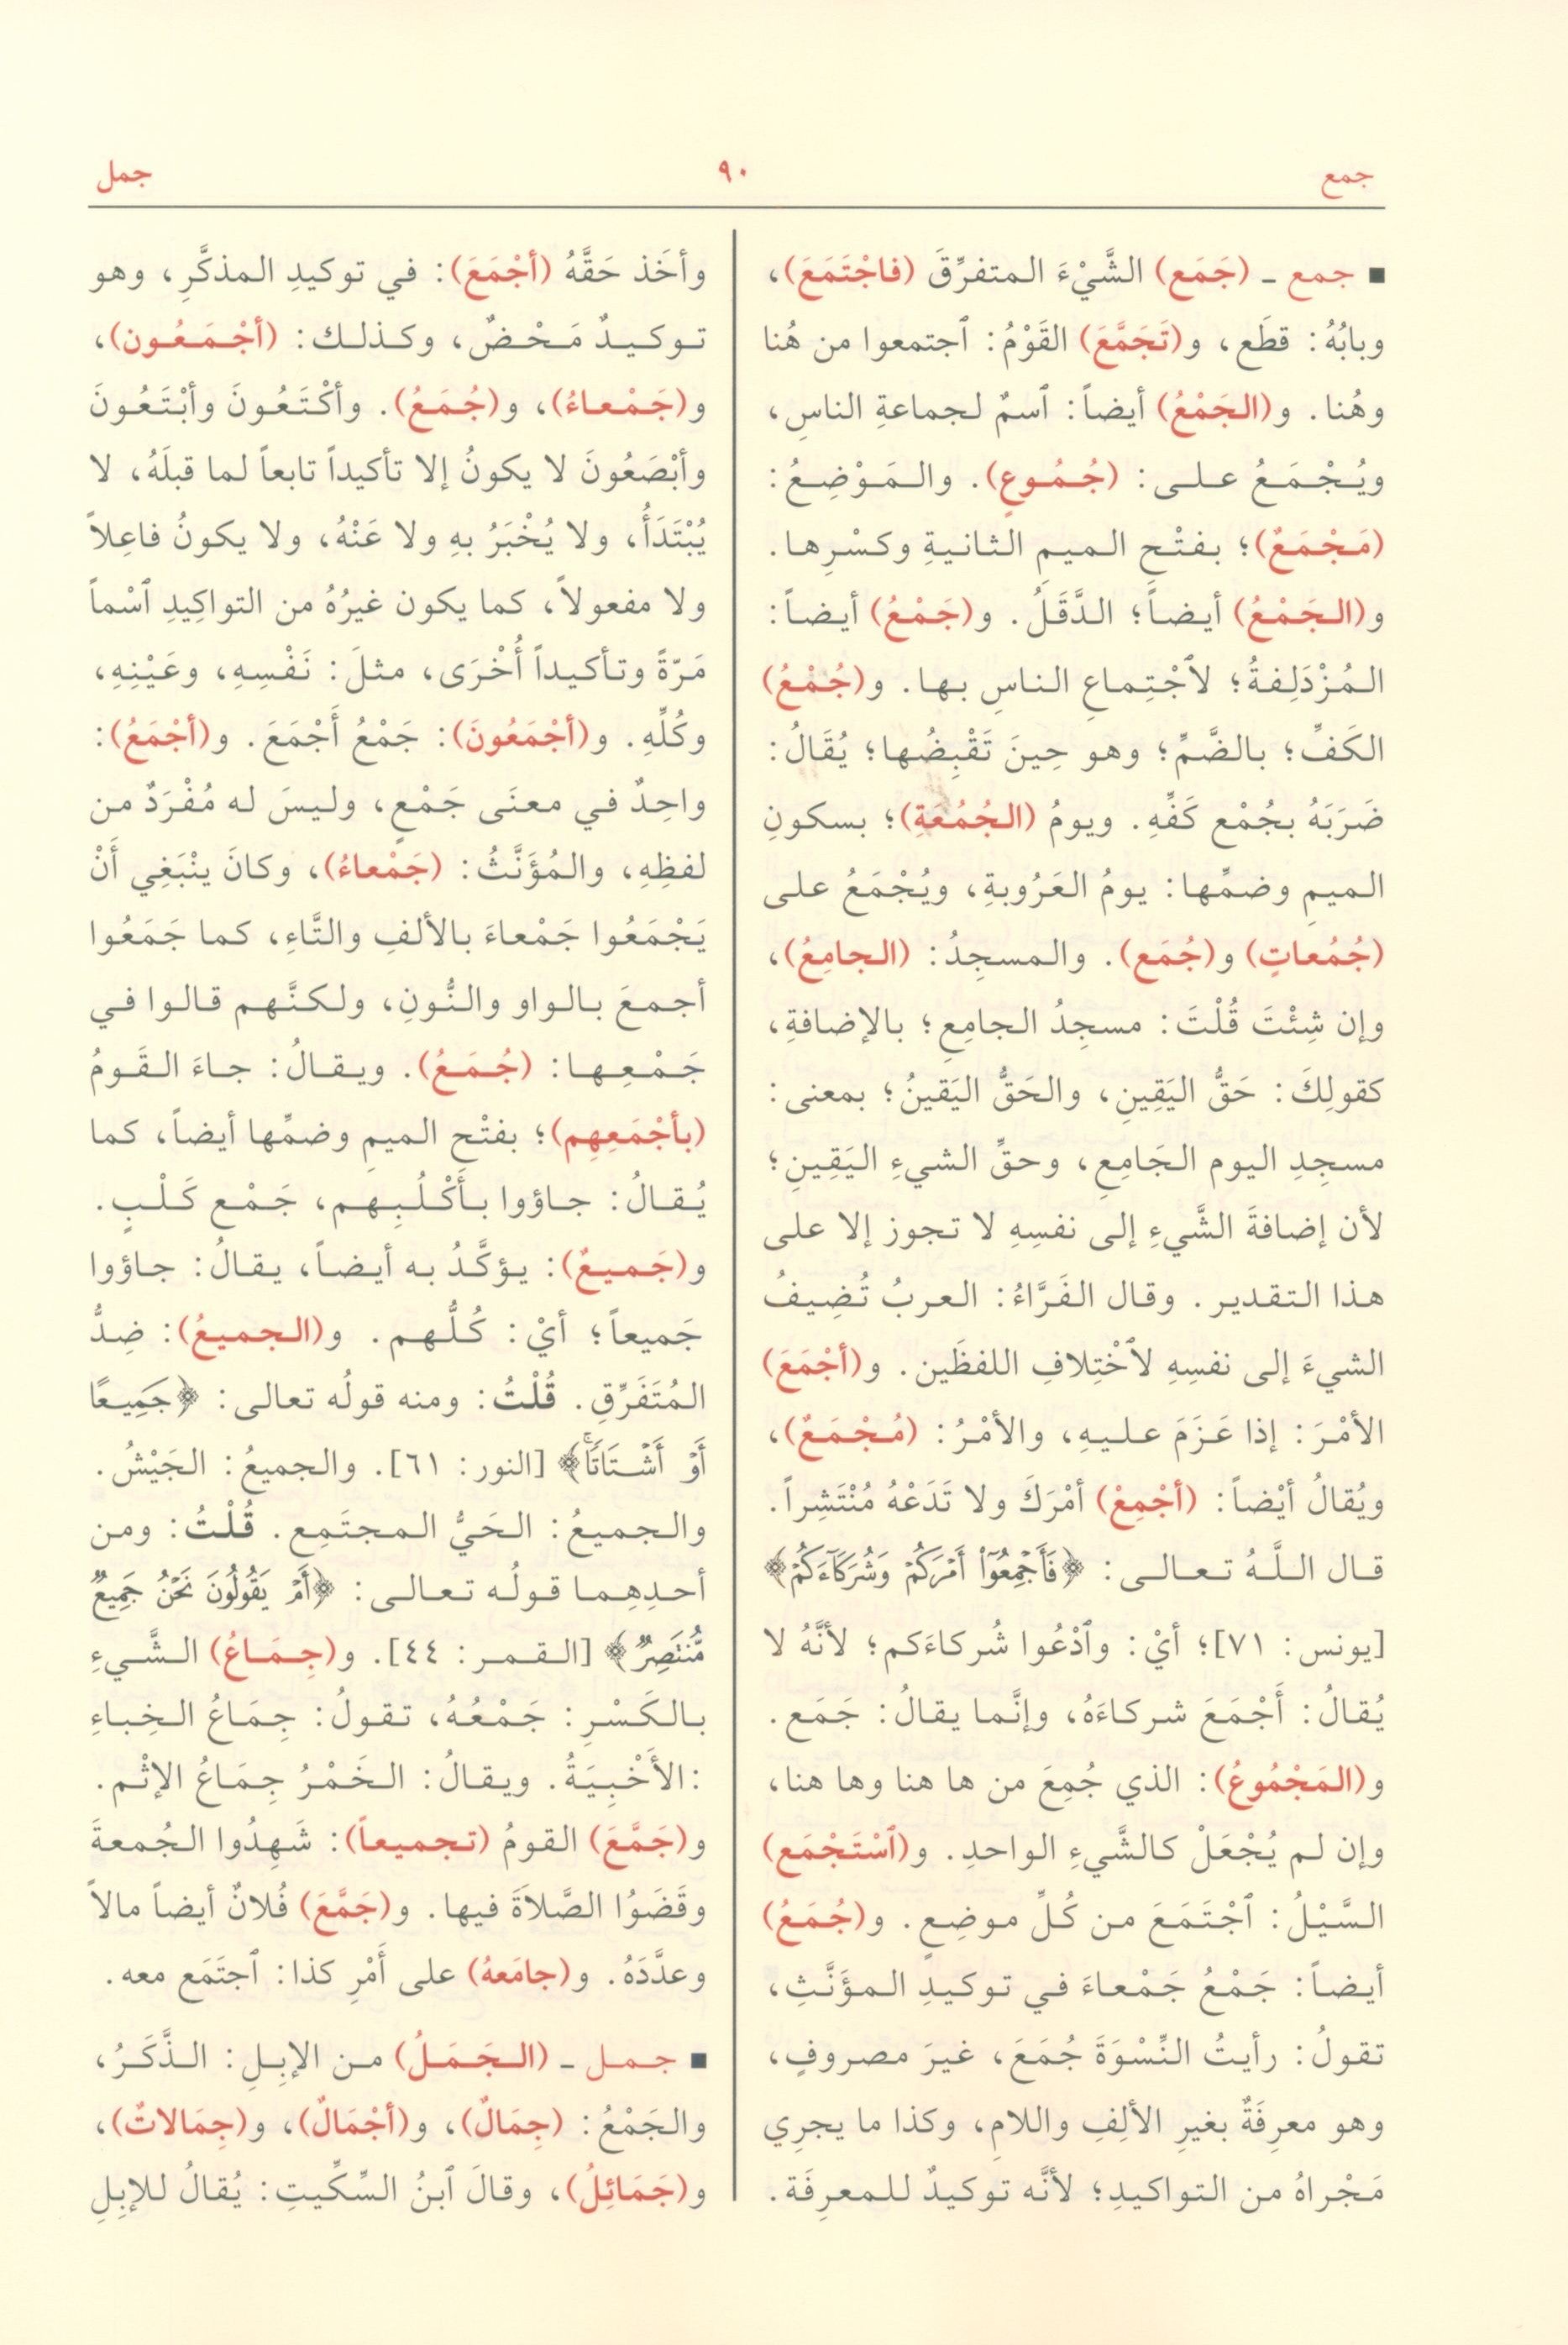 جمع
٩٠
جمل
■ جمع ـ (جَمَع) الشَّيْءَ المتفرِّقَ (فاجْتَمَعَ)،
وبابُهُ: قطَع، و(تَجَمَّعَ) القَوْمُ: ٱجتمعوا من هُنا
وهُنا. و(الجَمْعُ) أيضاً: ٱسمٌ لجماعةِ الناسِ،
ويُجْمَعُ على: (جُمُوعٍ). والمَوْضِعُ:
(مَجْمَعٌ)؛ بفتْحِ الميمِ الثانيةِ وكسْرِها.
و(الجَمْعُ) أيضاً؛ الدَّقَلُ. و(جَمْعُ) أيضاً:
المُزْدَلِفةُ؛ لٱجْتِماعِ الناسِ بها. و(جُمْعُ)
الكَفِّ؛ بالضَّمِّ؛ وهو حِينَ تَقْبِضُها؛ يُقَالُ:
ضَرَبَهُ بجُمْعِ كَفِّهِ. ويومُ (الجُمُعَةِ)؛ بسكونِ
الميمِ وضمِّها: يومُ العَرُوبةِ، ويُجْمَعُ على
(جُمُعاتٍ) و(جُمَع). والمسجِدُ: (الجامِعُ)،
وإن شِئْتَ قُلْتَ: مسجِدُ الجامِعِ؛ بالإضافةِ،
كقولِكَ: حَقُّ اليَقِينِ، والحَقُّ اليَقينُ؛ بمعنى:
مسجِدِ اليوم الجَامِعِ، وحقِّ الشيءِ اليَقِينِ؛
لأن إضافةَ الشَّيءِ إلى نفسِهِ لا تجوز إلا على
هذا التقدير. وقال الفَرَّاءُ: العربُ تُضِيفُ
الشيءَ إلى نفسِهِ لٱخْتِلافِ اللفظَين. و(أجْمَعَ)
الأمْرَ: إذا عَزَمَ عليهِ، والأمْرُ: (مُجْمَعٌ)،
ويُقالُ أيْضاً: (أجْمِعْ) أمْرَكَ ولا تَدَعْهُ مُنْتَشِراً.
قال اللَّهُ تعالى: ﴿فَأَجْمِعُوٓاْ أَمْرَكُمْ وَشُرَكَآءَكُمْ﴾
[يونس: ٧١]؛ أيْ: وٱدْعُوا شُركاءَكم؛ لأنَّهُ لا
يُقالُ: أَجْمَعَ شركاءَهُ، وإنَّما يقالُ: جَمَع.
و(المَجْمُوعُ): الذي جُمِعَ من ها هنا وها هنا،
وإن لم يُجْعَلْ كالشَّيءِ الواحدِ. و(ٱسْتَجْمَع)
السَّيْلُ: ٱجْتَمَعَ من كُلِّ موضِعٍ. و(جُمَعُ)
أيضاً: جَمْعُ جَمْعاءَ في توكيدِ المؤَنَّثِ،
تقولُ: رأيتُ النِّسْوَةَ جُمَعَ، غيرَ مصروفٍ،
وهو معرِفَةٌ بغيرِ الألِفِ واللامِ، وكذا ما يجرِي
مَجْراهُ من التواكيدِ؛ لأنَّه توكيدٌ للمعرِفَة.
وأخَذ حَقَّهُ (أجْمَعَ): في توكيدِ المذكَّرِ، وهو
توكيدٌ مَحْضٌ، وكذلك: (أجْمَعُون)،
و(جَمْعاءُ)، و(جُمَعُ). وأكْتَعُونَ وأبْتَعُونَ
وأبْصَعُونَ لا يكونُ إلا تأكيداً تابعاً لما قبلَهُ، لا
يُبْتَدَأُ، ولا يُخْبَرُ بهِ ولا عَنْهُ، ولا يكونُ فاعِلاً
ولا مفعولاً، كما يكون غيرُهُ من التواكِيدِ ٱسْماً
مَرّةً وتأكيداً أُخْرَى، مثلَ: نَفْسِهِ، وعَيْنِهِ،
وكُلِّهِ. و(أجْمَعُونَ): جَمْعُ أَجْمَعَ. و(أجْمَعُ):
واحِدٌ في معنَى جَمْعٍ، وليسَ له مُفْرَدٌ من
لفظِهِ، والمُؤَنَّثُ: (جَمْعاءُ)، وكانَ ينْبَغِي أَنْ
يَجْمَعُوا جَمْعاءَ بالألفِ والتَّاءِ، كما جَمَعُوا
أجمعَ بالواو والنُّونِ، ولكنَّهم قالوا في
جَمْعِها: (جُمَعُ). ويقالُ: جاءَ القَومُ
(بأجْمَعِهِم)؛ بفتْحِ الميمِ وضمِّها أيضاً، كما
يُقالُ: جاؤوا بأَكْلُبِهم، جَمْع كَلْبٍ.
و(جَميعٌ): يؤكَّدُ به أيضاً، يقالُ: جاؤوا
جَميعاً؛ أيْ: كُلُّهم. و(الجميعُ): ضِدُّ
المُتَفَرِّقِ. قُلْتُ: ومنه قولُه تعالى: ﴿جَمِيعًا
أَوْ أَشْتَاتًا﴾ [النور: ٦١]. والجميعُ: الجَيْشُ.
والجميعُ: الحَيُّ المجتَمِع. قُلْتُ: ومن
أحدِهِما قولُه تعالى: ﴿أَمْ يَقُولُونَ نَحْنُ جَمِيعٌ
مُّنتَصِرٌ﴾ [القمر: ٤٤]. و(جِمَاعُ) الشَّيءِ
بالكَسْرِ: جَمْعُهُ، تقولُ: جِمَاعُ الخِباءِ
:الأَخْبِيَةُ. ويقالُ: الخَمْرُ جِمَاعُ الإثْم.
و(جَمَّعَ) القومُ (تجميعاً): شَهِدُوا الجُمعةَ
وقَضَوُا الصَّلاةَ فيها. و(جَمَّعَ) فُلانٌ أيضاً مالاً
وعدَّدَهُ. و(جامَعهُ) على أَمْرِ كذا: ٱجتَمَع معه.
■ جمل ـ (الجَمَلُ) من الإبِلِ: الذَّكَرُ،
والجَمْعُ: (جِمَالٌ)، و(أجْمَالٌ)، و(جِمَالاتٌ)،
و(جَمَائِلُ)، وقالَ ٱبنُ السِّكِّيتِ: يُقالُ للإبِلِ